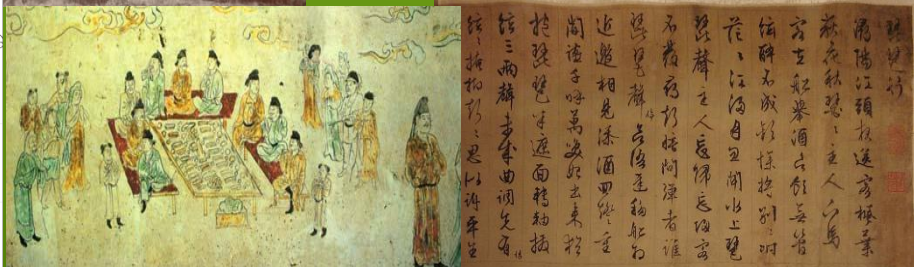 琵琶行
潯陽江頭夜送客楓葉
荻花秋瑟〻主人下馬
客在船舉酒欲飲無管
絃醉不成歡慘將別〻時
茫〻江浸月忽聞水上琵
琶聲主人忘歸客
不發尋聲暗問彈者誰
琵琶聲停欲語遲移船相
近邀相見添酒回燈重
開宴千呼萬喚始出來猶
抱琵琶半遮面轉軸撥
絃三兩聲未成曲調先有情
絃〻掩抑聲〻思似訴平生